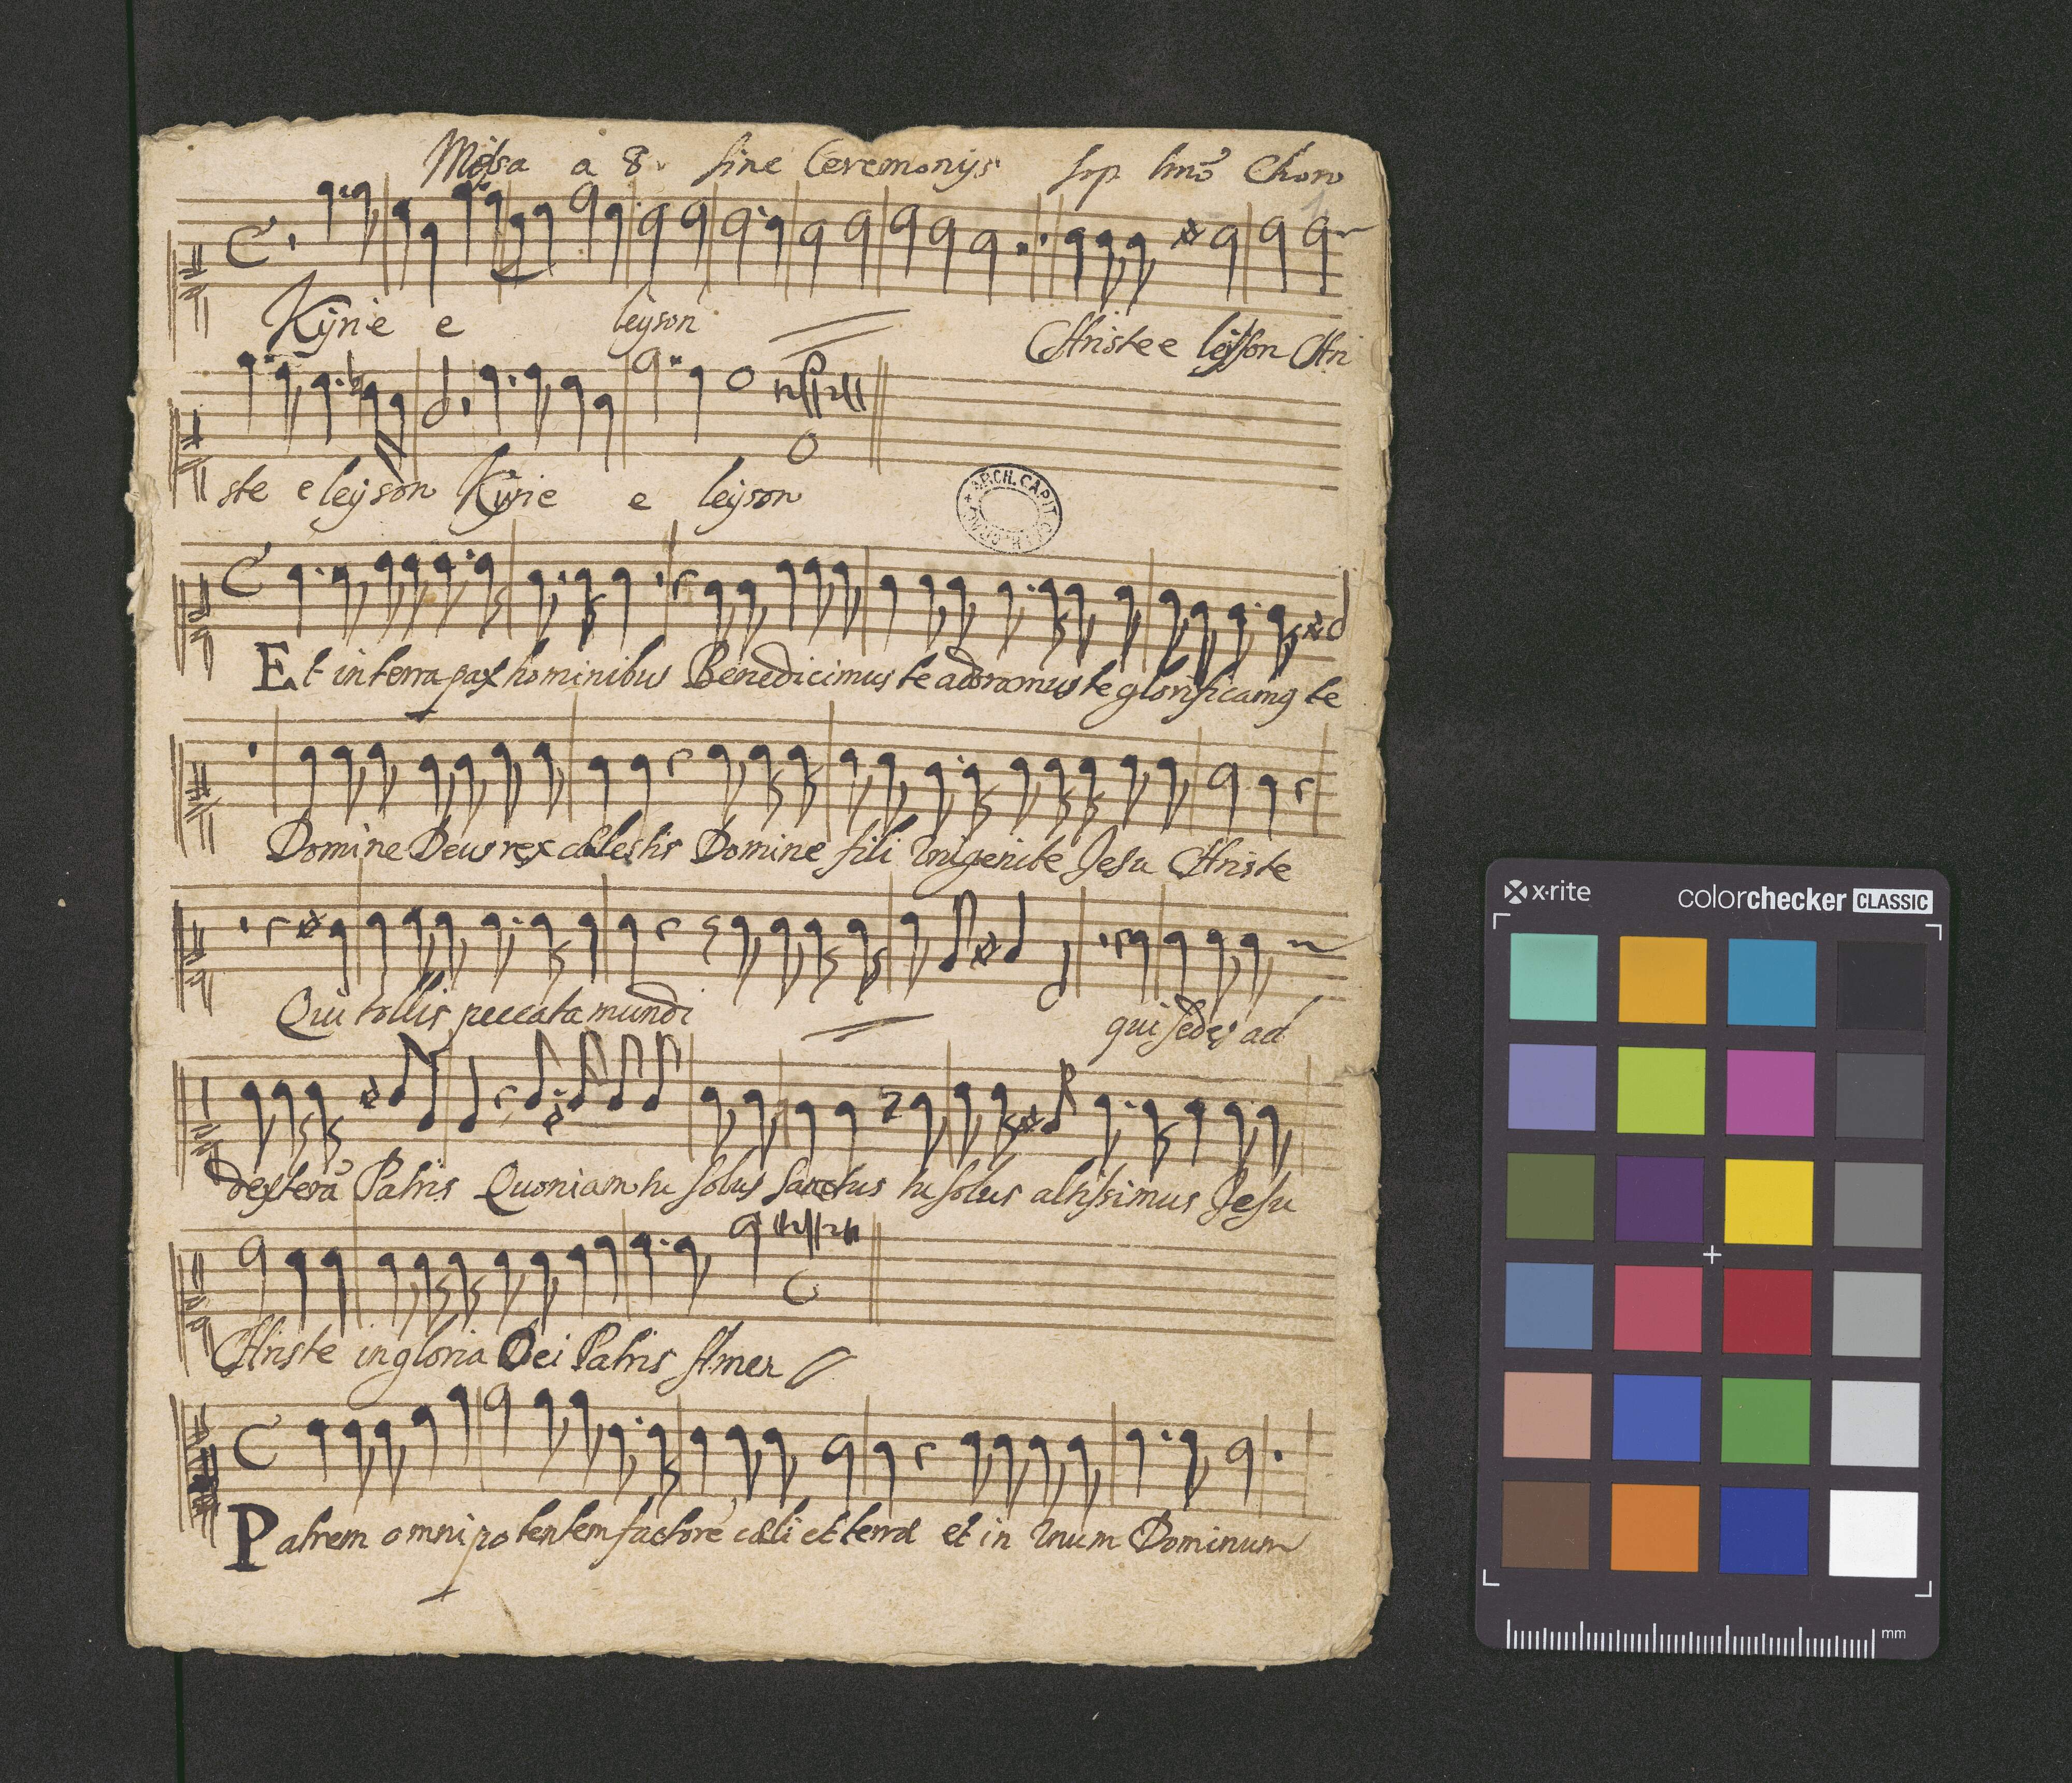 Missa a 8. sine Ceremonijs Sop Imo Choro
Kyrie e leyson Christe e leyson Chri
ste e leyson Kyrie e leyson
ARCH. CAPIT.
Et in terra pax hominibus Benedicimus te adoramus te glorificamq te
Domine Deus rex cælestis Domine fili Unigenite Jesu Christe
Qui tollis peccata mundi qui sedes ad
dexterã Patris Quoniam tu solus Sanctus tu solus altissimus Jesu
Christe in gloria Dei Patris Amen
Patrem omnipotentem factorẽ cæli et terræ et in Unum Dominum
x·rite colorchecker CLASSIC
mm